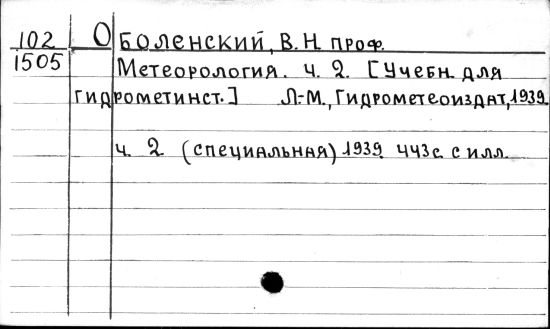 102 Оболенский, В. Н. проф.
1505 Метеорология. ч. 2. [Учебн. для
гидрометинст.] Л.-М., Гидрометеоиздат, 1939
ч. 2 (специальная) 1939. 443с. с илл.